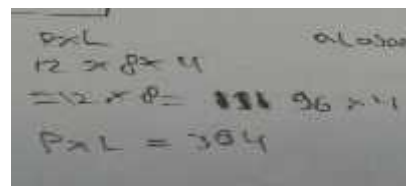 PxL
12 x 8 x 4
=12 x 8= 96 x 4
PxL = 384